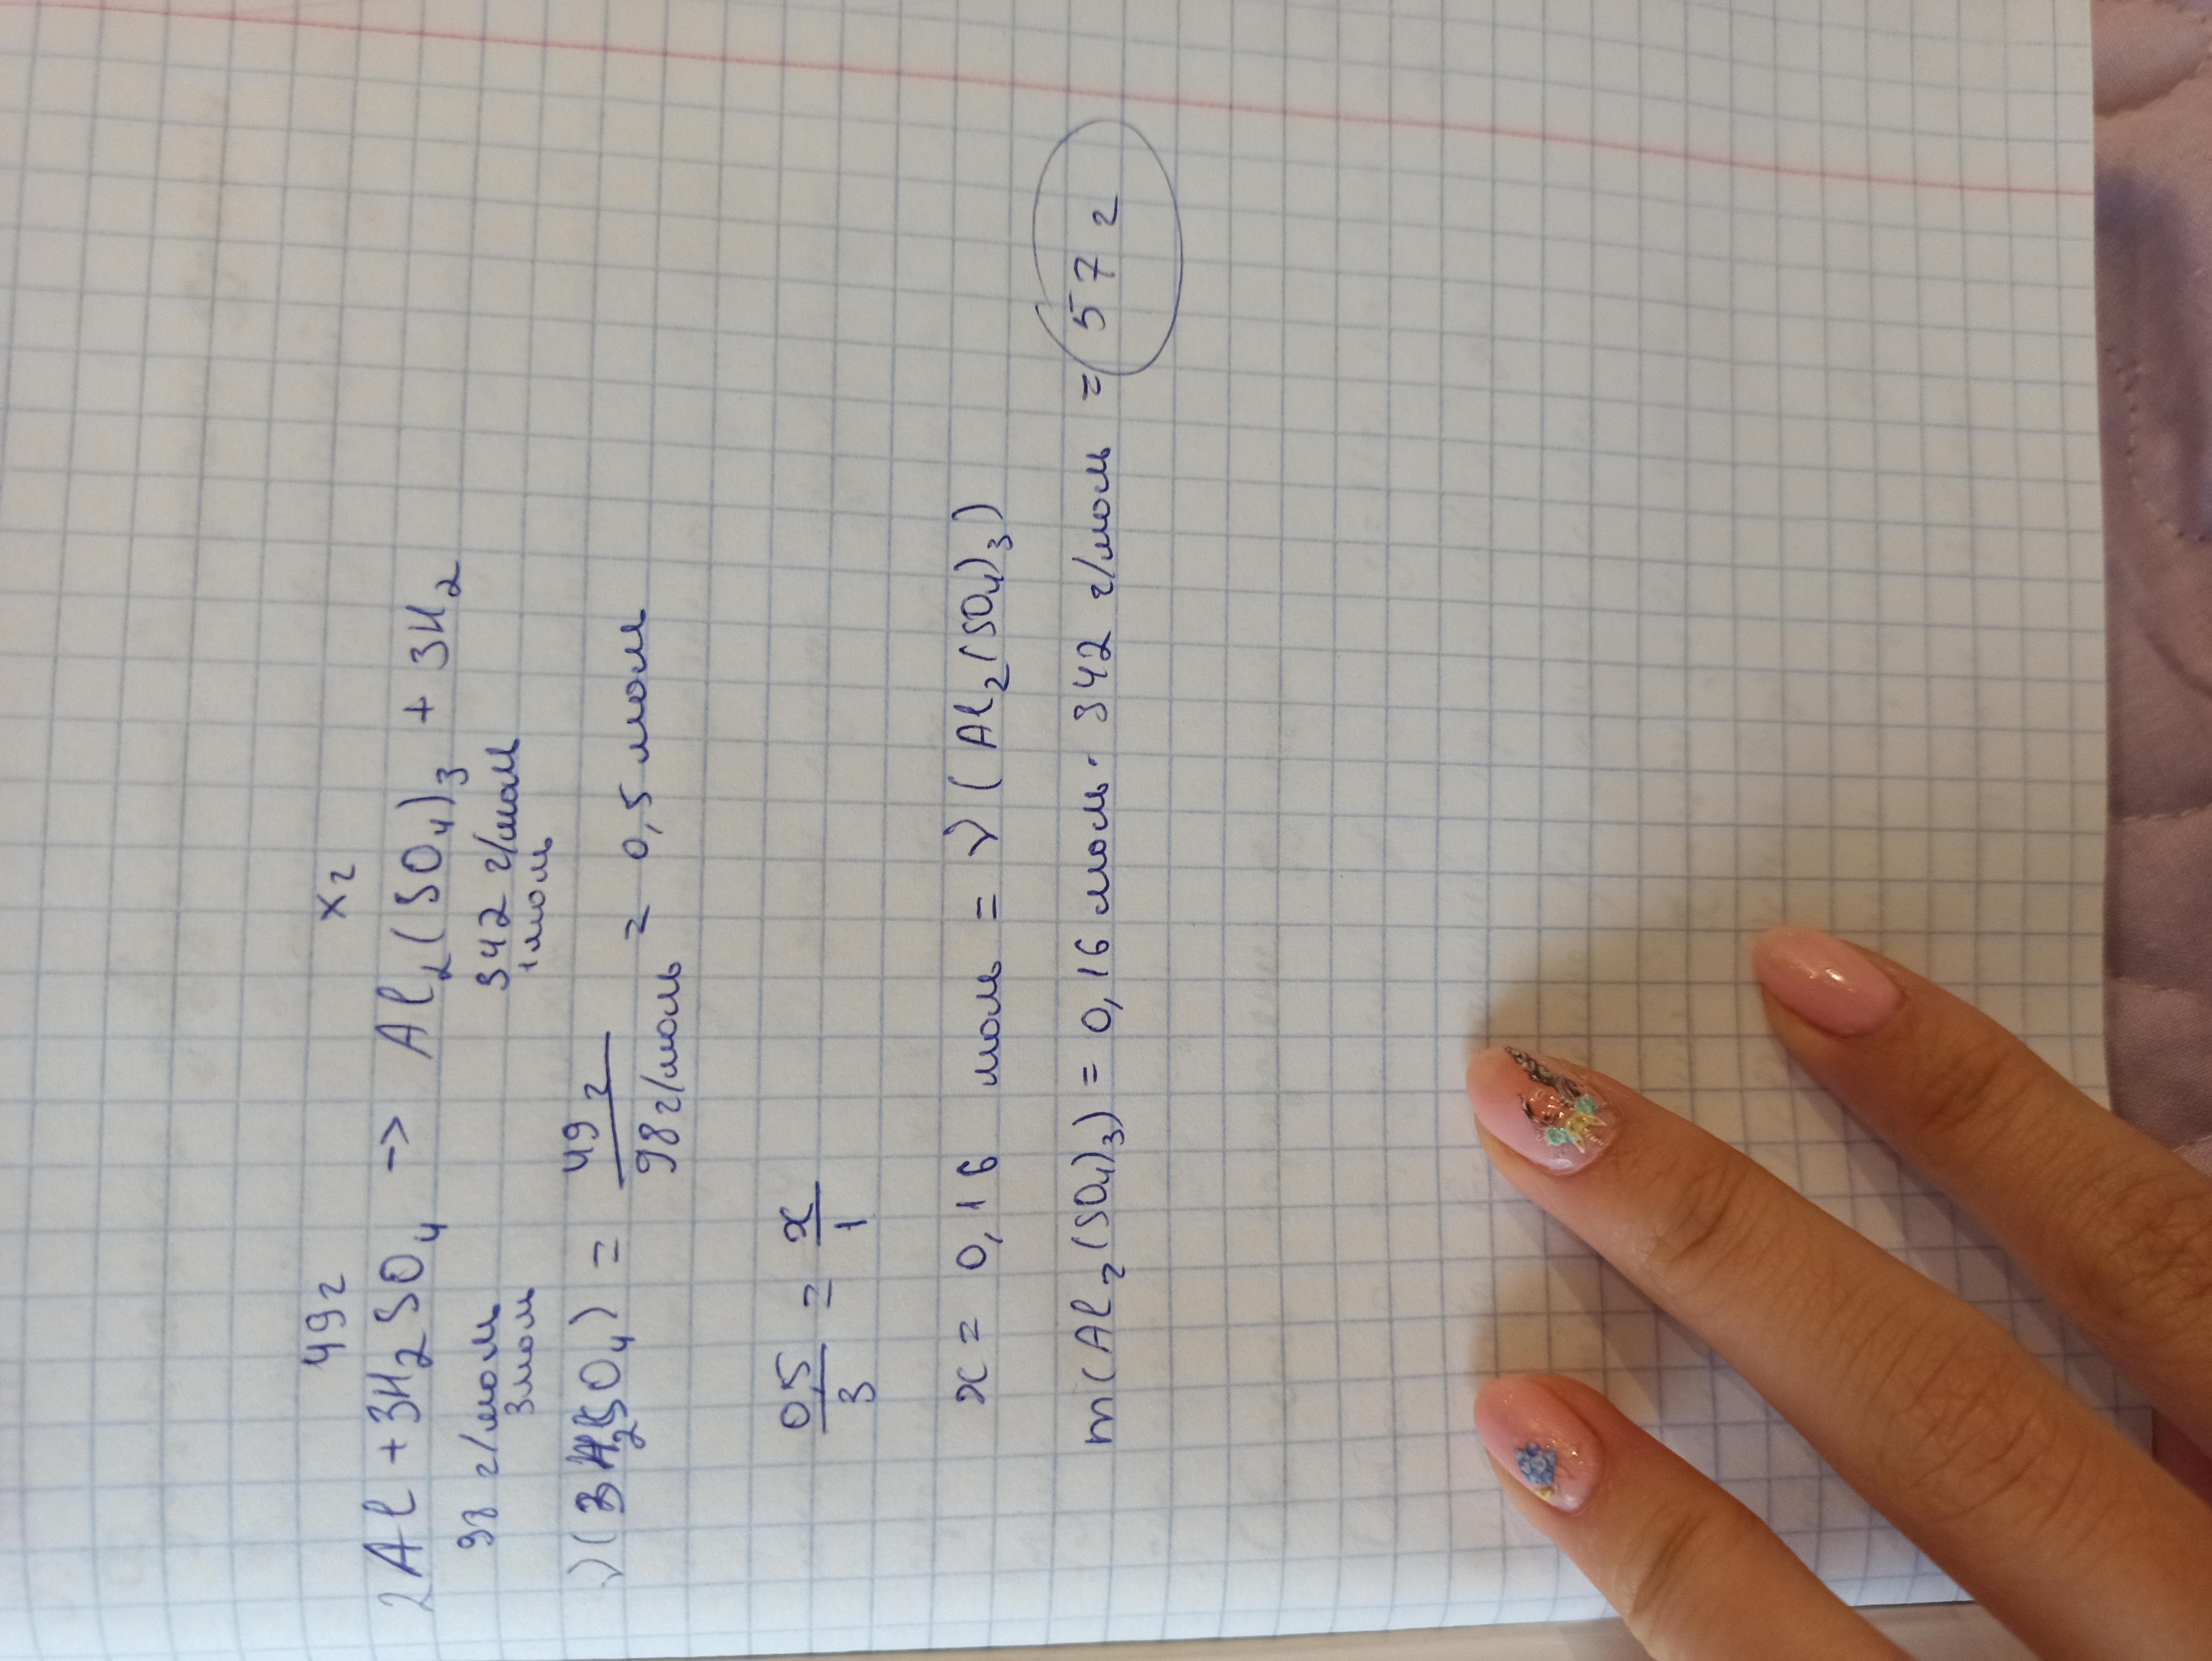 49г xг
2Al + 3H₂SO₄ -> Al₂(SO₄)₃ + 3H₂
98 г/моль 342 г/моль
3моль 1моль
ν(3H₂SO₄) = 49 г / 98 г/моль = 0,5 моль
0,5/3 = x/1
x = 0,16 моль = ν(Al₂(SO₄)₃)
m(Al₂(SO₄)₃) = 0,16 моль · 342 г/моль = 57 г